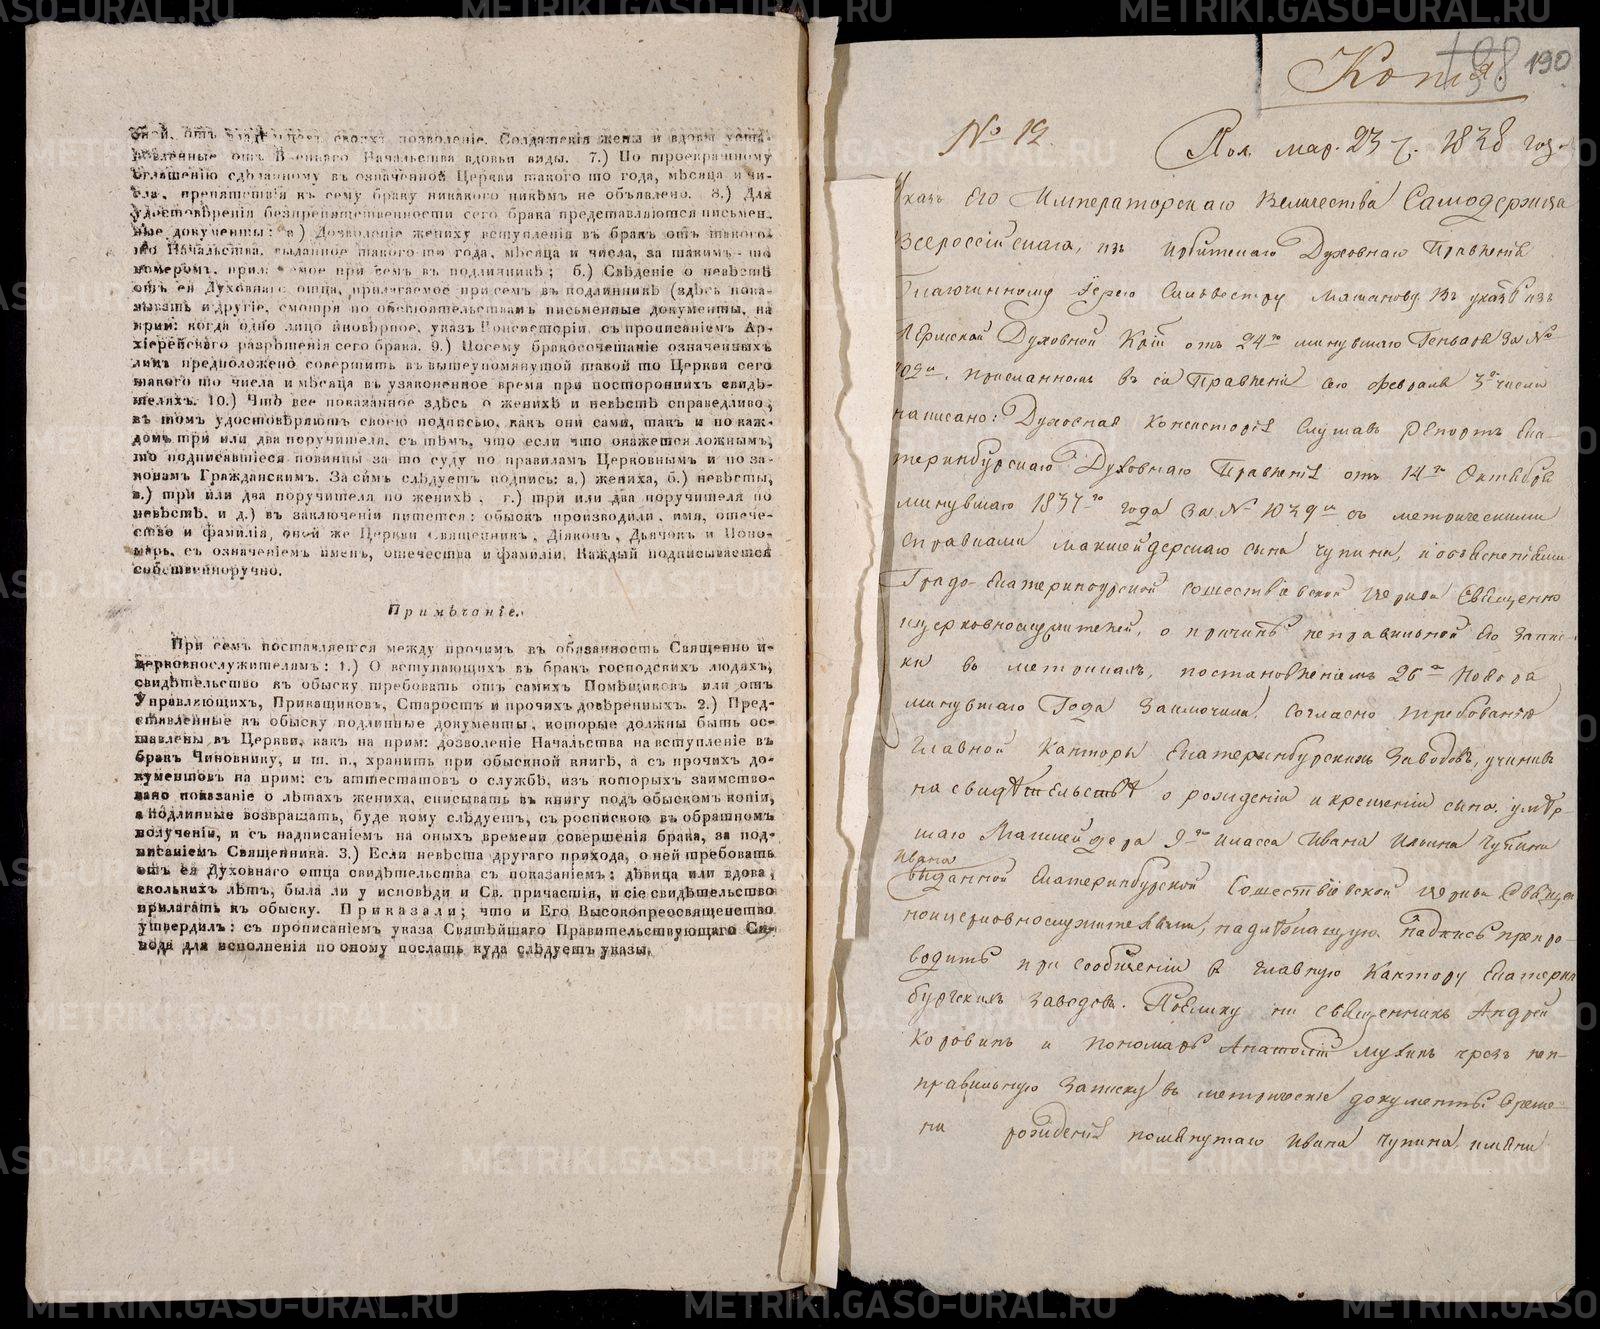 своихъ позволеніе. Солдатскія жены и вдовы уста-
новленные отъ Военнаго Начальства вдовьи виды. 7.) По троекратному
оглашенію сдѣланному въ означенной Церкви такого то года, мѣсяца и чи-
сла, препятствія къ сему браку никакого никѣмъ не объявлено. 8.) Для
удостовѣренія безпрепятственности сего брака представляются письмен-
ные документы: а) Дозволеніе жениху вступленія въ бракъ отъ такого
то Начальства, выданное такого то года, мѣсяца и числа, за такимъ-то
номеромъ, прилагаемое при семъ въ подлинникѣ; б.) Свѣденіе о невѣстѣ
отъ ея Духовнаго отца, прилагаемое при семъ въ подлинникѣ (здѣсь пока-
зывать и другіе, смотря по обстоятельствамъ письменные документы, на
прим: когда одно лицо иновѣрное, указъ Консисторіи, съ прописаніемъ Ар-
хіерейскаго разрѣшенія сего брака. 9.) Посему бракосочетаніе означенныхъ
лицъ предположено совершить въ вышеупомянутой такой то Церкви сего
такого то числа и мѣсяца въ узаконенное время при постороннихъ свидѣ-
теляхъ. 10.) Что все показанное здѣсь о женихѣ и невѣстѣ справедливо,
въ томъ удостовѣряютъ своею подписью, какъ они сами, такъ и по каж-
домъ три или два поручителя, съ тѣмъ, что если что окажется ложнымъ,
то подписавшіеся повинны за то суду по правиламъ Церковнымъ и по за-
конамъ Гражданскимъ. За симъ слѣдуетъ подпись: а.) жениха, б.) невѣсты,
в.) три или два поручителя по женихѣ, г.) три или два поручителя по
невѣстѣ, и д.) въ заключеніи пишется: обыскъ производили, имя, отече-
ство и фамилія, оной же Церкви Священникъ, Діяконъ, Дьячокъ и Поно-
марь, съ означеніемъ именъ, отечества и фамиліи. Каждый подписывается
собственноручно.
Примѣчаніе.
При семъ поставляется между прочимъ въ обязанность Священно и-
церковнослужителямъ: 1.) О вступающихъ въ бракъ господскихъ людяхъ,
свидѣтельство къ обыску требовать отъ самихъ Помѣщиковъ или отъ
Управляющихъ, Прикащиковъ, Старостъ и прочихъ довѣренныхъ. 2.) Пред-
ставленные къ обыску подлинные документы, которые должны быть ос-
тавлены въ Церкви, какъ на прим: дозволеніе Начальства на вступленіе въ
бракъ Чиновнику, и т. п., хранить при обыскной книгѣ, а съ прочихъ до-
кументовъ на прим: съ аттестатовъ о службѣ, изъ которыхъ заимство-
вано показаніе о лѣтахъ жениха, списывать въ книгу подъ обыскомъ копіи,
а подлинные возвращать, буде кому слѣдуетъ, съ роспискою въ обратномъ
полученіи, и съ надписаніемъ на оныхъ времени совершенія брака, за под-
писаніемъ Священника. 3.) Если невѣста другаго прихода, о ней требовать
отъ ея Духовнаго отца свидѣтельства съ показаніемъ: дѣвица или вдова,
сколькихъ лѣтъ, была ли у исповѣди и Св. причастія, и сіе свидѣтельство
прилагать къ обыску. Приказали; что и Его Высокопреосвященство
утвердилъ: съ прописаніемъ указа Святѣйшаго Правительствующаго Си-
нода для исполненія по оному послать куда слѣдуетъ указы.
190
Копія.
№ 12. Пол. мар. 23 1838 год.
Указъ Его Императорскаго Величества Самодержца
Всероссійскаго, изъ Ирбитскаго Духовнаго Правленія
Благочинному Іерею Сильвестру Въ указѣ изъ
Пермской Духовной отъ 24го минувшаго Генваря За №
присланномъ въ сіе Правленіе сего февраля 3го числа
написано: Духовная Консисторія слушавъ Репортъ Ека-
теринбургскаго Духовнаго Правленія отъ 14го Октября
минувшаго 1837го года за № 1039м съ метрическими
справками сына Чупина, и объясненіями
Градо-Екатеринбургской Сошествіевской церкви Священно
и церковнослужителей, о причинѣ неправильной его запис-
ки въ метрикахъ, постановленіемъ 26го Ноября
минувшаго Года Заключила, согласно требованію
Главной Канторы Екатеринбургскихъ Заводовъ, учинивъ
на свидѣтельствѣ о рожденіи и крещеніи сына умѣр-
шаго 9го класса Ивана Ильина Чупина
Ивана
выданной Екатеринбургской Сошествіевской церкви Священ
ноицерковнослужителями, надлѣжащую надпись препро-
водить при сообщеніи въ главную Кантору Екатерин
бургскихъ заводовъ. Поелику же священникъ Андрей
Коровинъ и пономарь Анатолій чрезъ неп-
правильную записку въ метрическіе документы време-
ни рожденія помянутаго Ивана Чупина,
METRIKI.GASO-URAL.RU